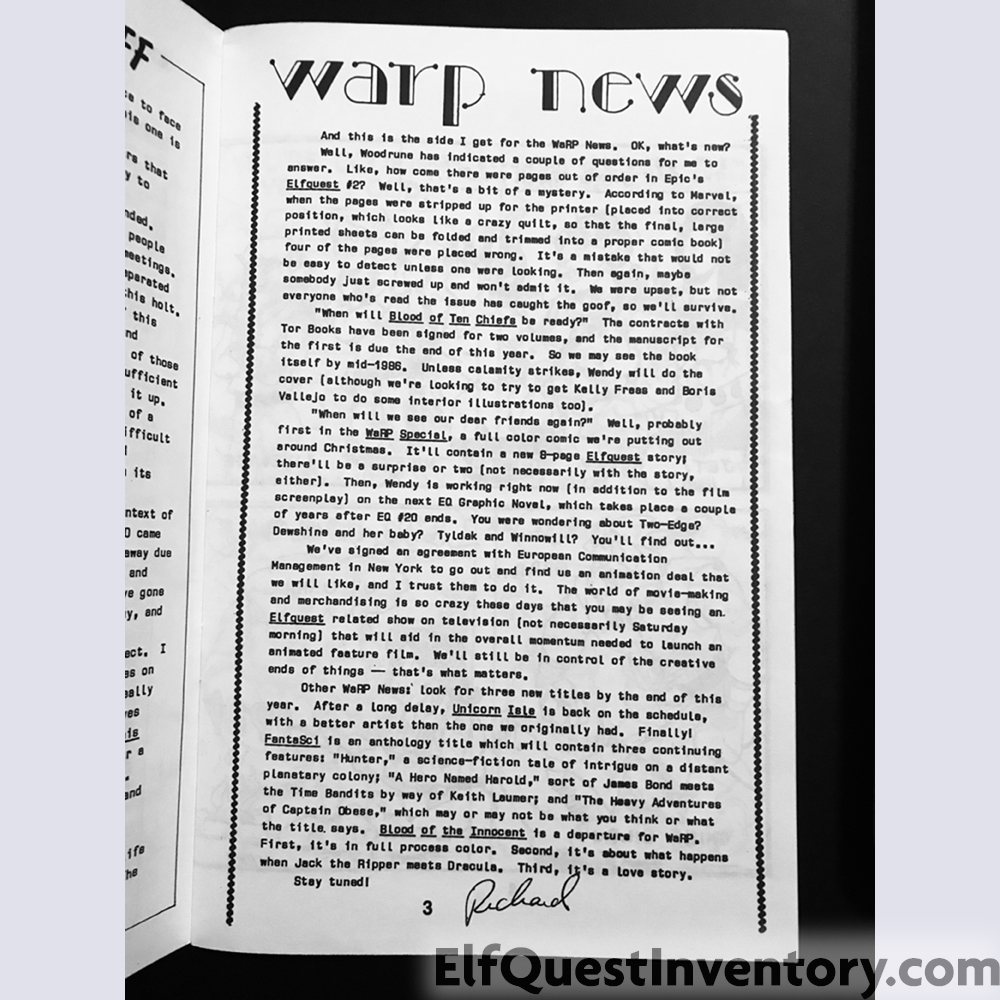 FF
to face
one is
that
to
people
meetings.
this holt.
this
of those
it up.
of a
its
came
away due
and
gone
and
I
on
is
a
and
warp news
And this is the side I get for the WaRP News. OK, what's new?
Well, Woodrune has indicated a couple of questions for me to
answer. Like, how come there were pages out of order in Epic's
Elfquest #2? Well, that's a bit of a mystery. According to Marvel,
when the pages were stripped up for the printer (placed into correct
position, which looks like a crazy quilt, so that the final, large
printed sheets can be folded and trimmed into a proper comic book)
four of the pages were placed wrong. It's a mistake that would not
be easy to detect unless one were looking. Then again, maybe
somebody just screwed up and won't admit it. We were upset, but not
everyone who's read the issue has caught the goof, so we'll survive.
"When will Blood of Ten Chiefs be ready?" The contracts with
Tor Books have been signed for two volumes, and the manuscript for
the first is due the end of this year. So we may see the book
itself by mid-1986. Unless calamity strikes, Wendy will do the
cover (although we're looking to try to get Kelly Freas and Boris
Vallejo to do some interior illustrations too).
"When will we see our dear friends again?" Well, probably
first in the WaRP Special, a full color comic we're putting out
around Christmas. It'll contain a new 8-page Elfquest story;
there'll be a surprise or two (not necessarily with the story,
either). Then, Wendy is working right now (in addition to the film
screenplay) on the next EQ Graphic Novel, which takes place a couple
of years after EQ #20 ends. You were wondering about Two-Edge?
Dewshine and her baby? Tyldak and Winnowill? You'll find out...
We've signed an agreement with European Communication
Management in New York to go out and find us an animation deal that
we will like, and I trust them to do it. The world of movie-making
and merchandising is so crazy these days that you may be seeing an
Elfquest related show on television (not necessarily Saturday
morning) that will aid in the overall momentum needed to launch an
animated feature film. We'll still be in control of the creative
ends of things — that's what matters.
Other WaRP News: look for three new titles by the end of this
year. After a long delay, Unicorn Isle is back on the schedule,
with a better artist than the one we originally had. Finally!
FantaSci is an anthology title which will contain three continuing
features: "Hunter," a science-fiction tale of intrigue on a distant
planetary colony; "A Hero Named Harold," sort of James Bond meets
the Time Bandits by way of Keith Laumer; and "The Heavy Adventures
of Captain Obese," which may or may not be what you think or what
the title says. Blood of the Innocent is a departure for WaRP.
First, it's in full process color. Second, it's about what happens
when Jack the Ripper meets Dracula. Third, it's a love story.
Stay tuned!
Richard
3
ElfQuestInventory.com